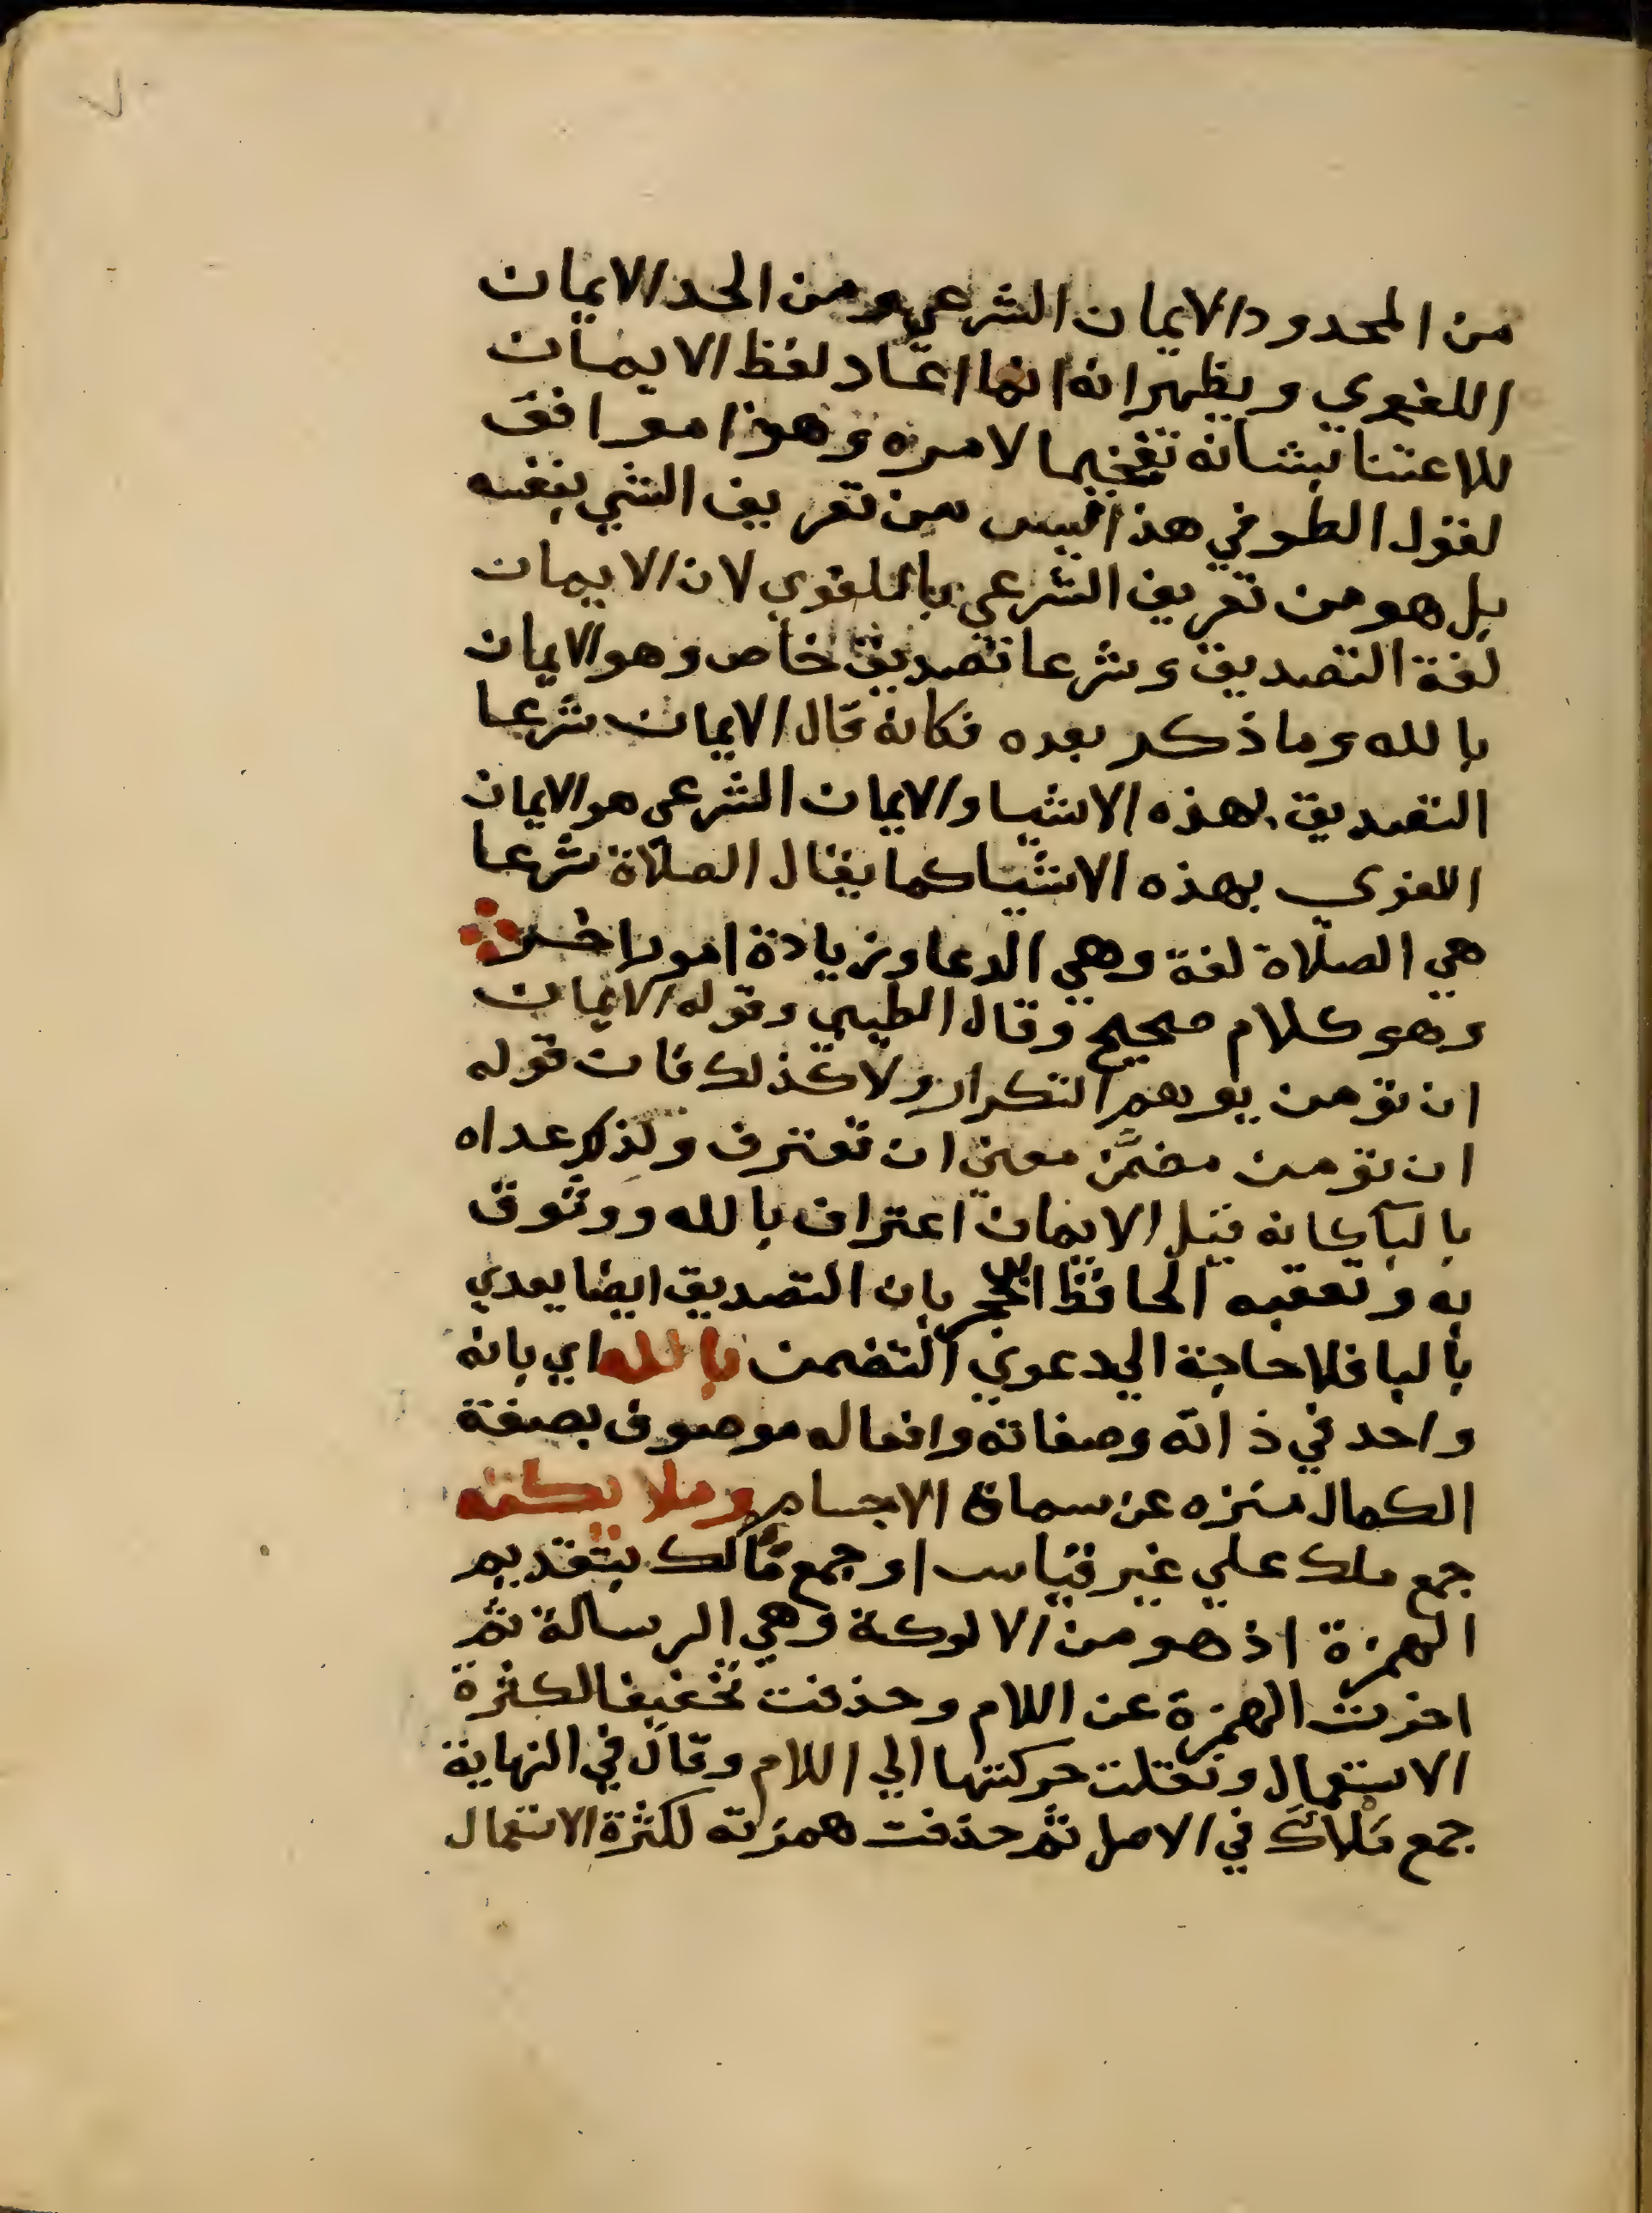 ٧
من المحدود الايمان الشرعي ومن الحد الايمان
اللغوي ويظهر انه انما اعاد لفظ الايمان
للاعتنا بشانه تفخيما لامره وهذا موافق
لقول الطوفي هذا ليس من تعريف الشي بنفسه
بل هو من تعريف الشرعي باللغوي لان الايمان
لغة التصديق وشرعا تصديق خاص وهو الايمان
بالله وما ذكر بعده فكانه قال الايمان شرعا
التصديق بهذه الاشيا والايمان الشرعي هو الايمان
اللغوي بهذه الاشيا كما يقال الصلاة شرعا
هي الصلاة لغة وهي الدعا وزيادة امور اخر
وهو كلام صحيح وقال الطيبي وقوله الايمان
ان تؤمن يوهم التكرار ولا كذلك فان قوله
ان تؤمن مضمَّن معني ان تعترف ولذلك عداه
بالبآ كانه قيل الايمان اعتراف بالله ووثوق
به وتعقبه الحافظ ابن حجر بان التصديق ايضا يعدي
بالبا فلا حاجة الي دعوي التضمن بالله اي بانه
واحد في ذاته وصفاته وافعاله موصوف بصفة
الكمال منزه عن سمات الاجسام وملايكته
جمع ملك علي غير قياس او جمع مَالك بتقديم
الهمزة اذ هو من الالوكة وهي الرسالة ثم
اخرت الهمزة عن اللام وحذفت تخفيفا لكثرة
الاستعمال ونقلت حركتها الي اللام وقال في النهاية
جمع مَلْاَك في الاصل ثم حذفت همزته لكثرة الاستعمال